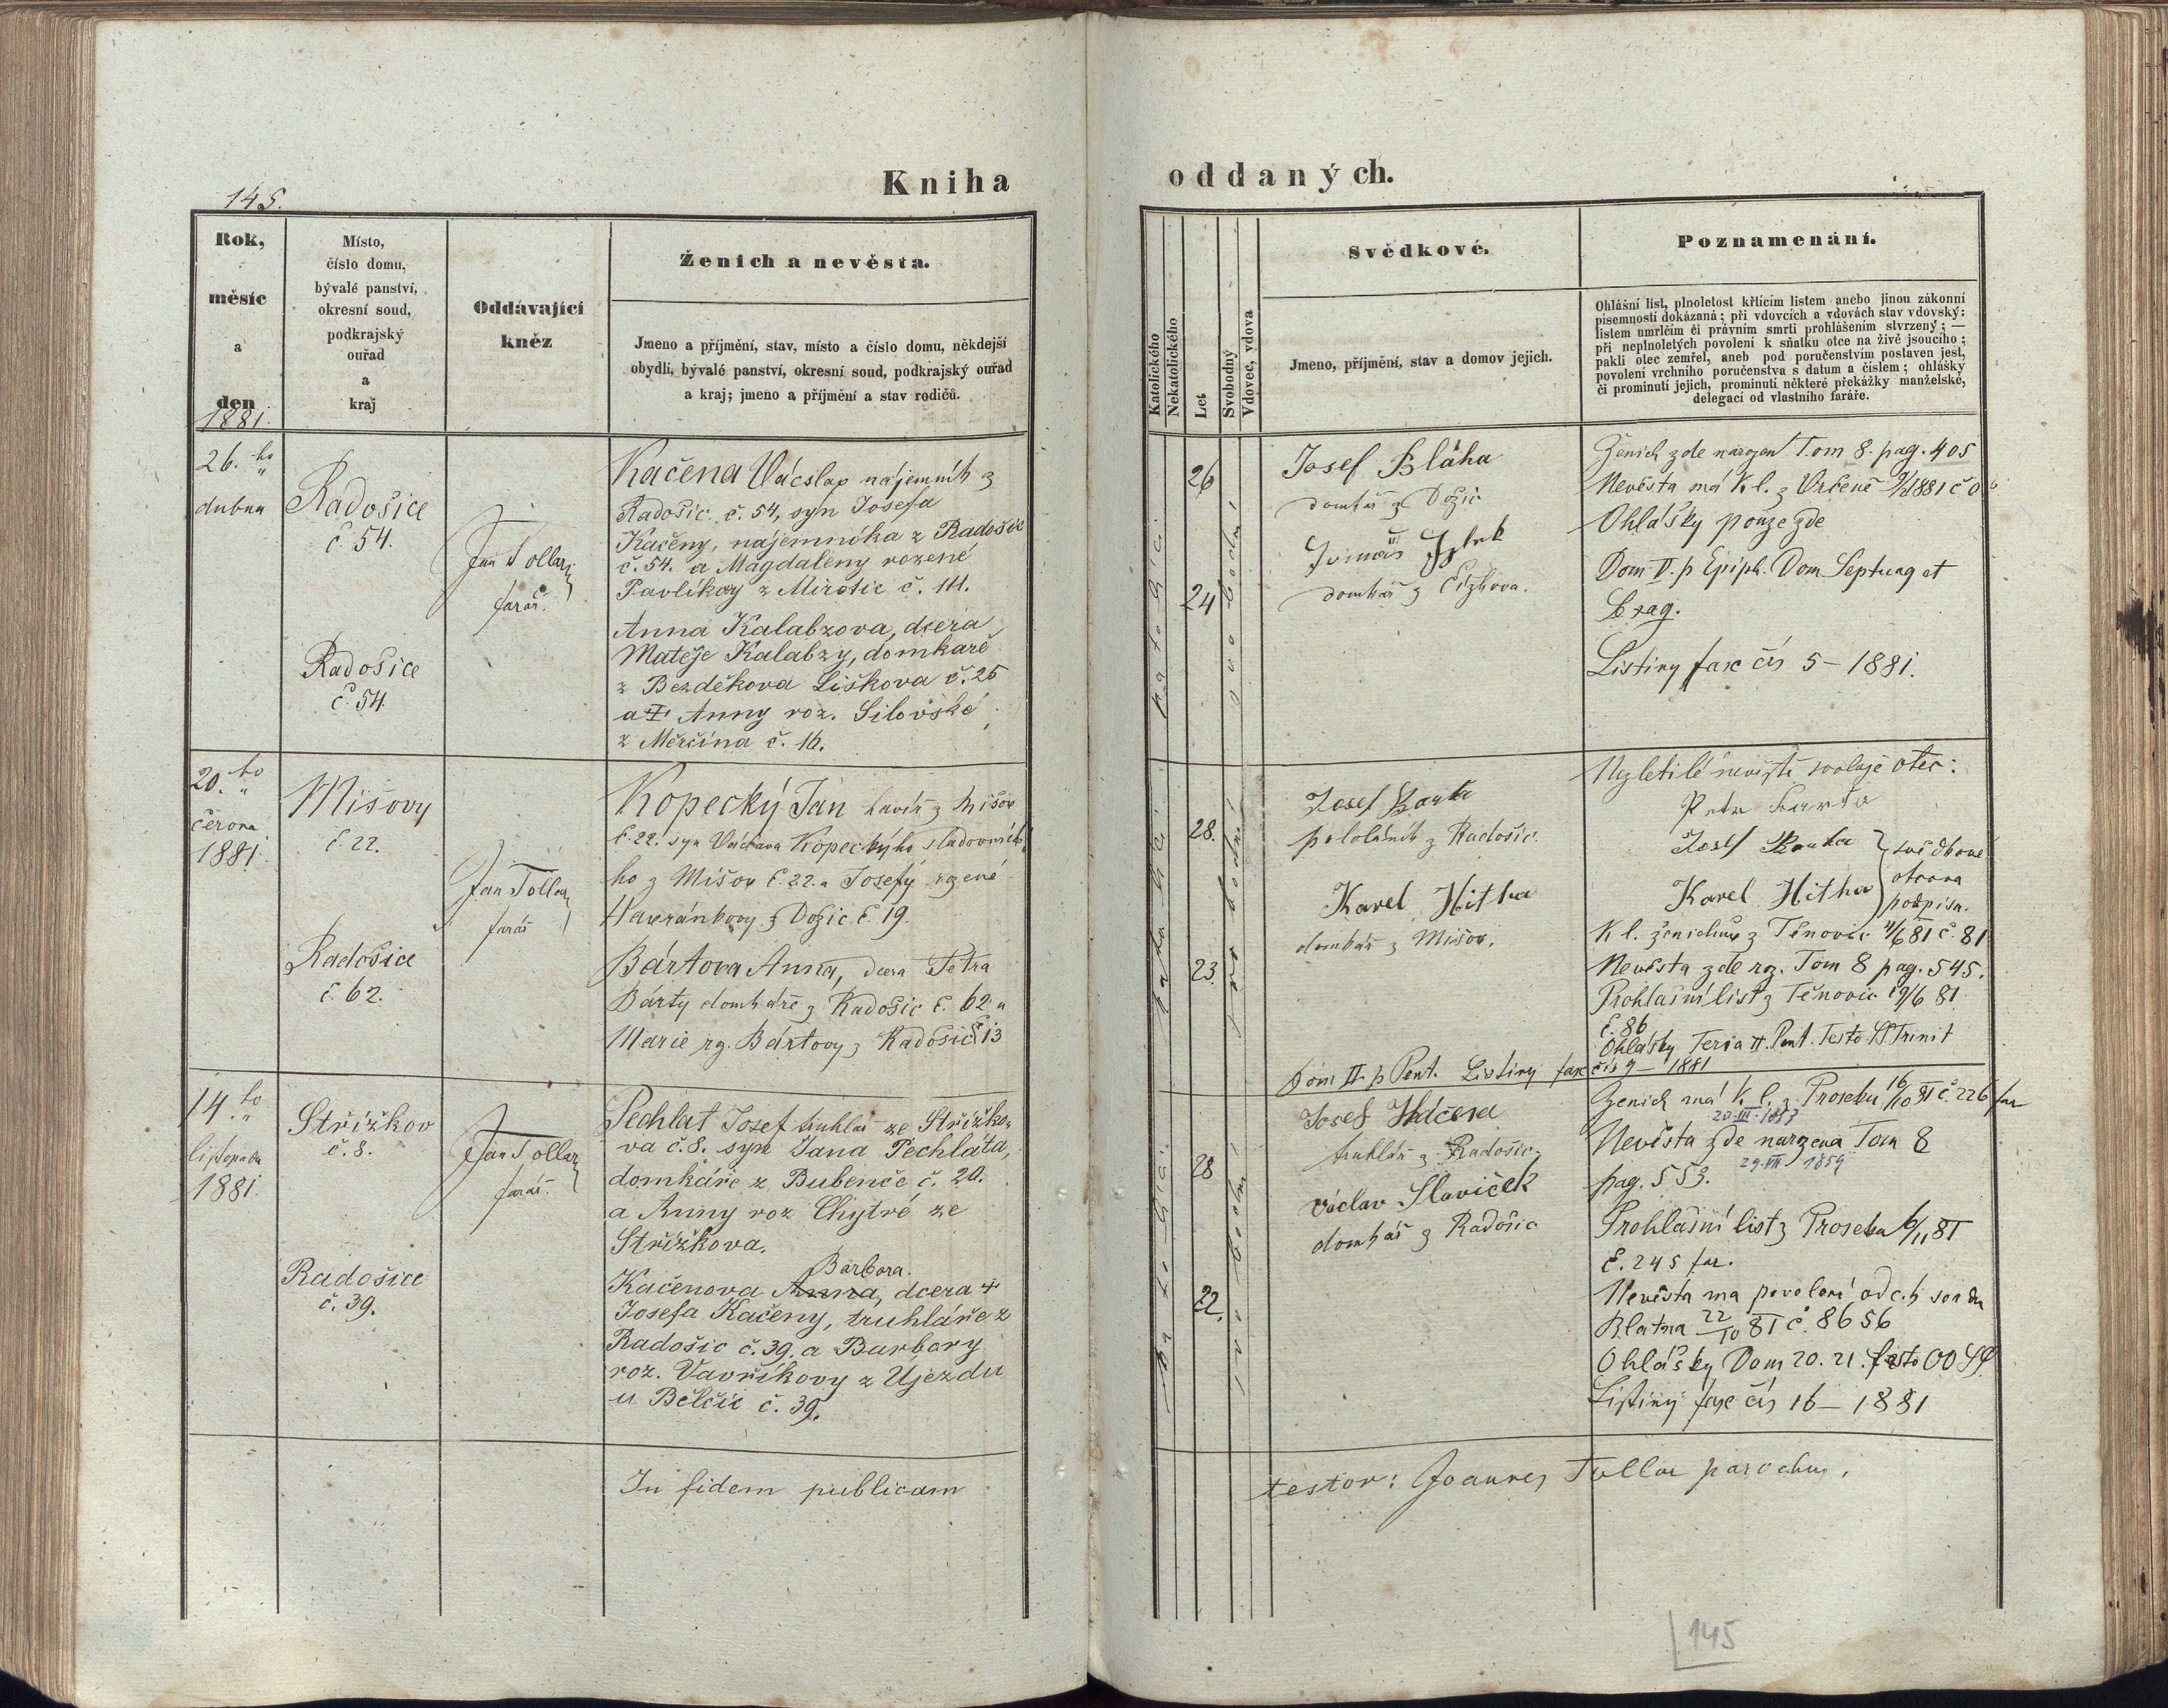 Kniha
145.
Rok,
měsíc
a
den
1881.
Místo,
číslo domu,
bývalé panství,
okresní soud,
podkrajský
ouřad
a
kraj
Oddávající
kněz
Ženich a nevěsta.
Jmeno a příjmění, stav, místo a číslo domu, někdejší
obydlí, bývalé panství, okresní soud, podkrajský ouřad
a kraj; jmeno a příjmění a stav rodičů.
26. ho
dubna
Radošice
č. 54.
Jan Tollar
farář.
Radošice
č. 54.
Kačena Vácslav nájemník z
Radošic č. 54, syn Josefa
Kačeny, nájemníka z Radošic
č. 54. a Magdaleny rozené
Pavlíkovy z Mirotic č. 111.
Anna Kalabzova, dcera
Matěje Kalabzy, domkaře
z Bezděkova Liškova č. 25
a Anny roz. Silovské
z Měrčína č. 16.
20. ho
června
1881.
Mišovy
č. 22.
Jan Tollar
farář
Radošice
č. 62.
Kopecký Jan havíř z Mišov
č. 22. syn Václava Kopeckýho sladovnic
ho z Mišov č. 22. a Josefy rozené
Havránkovy z Dožic č. 19.
Bártova Anna, dcera Petra
Bárty domkáře z Radošic č. 62. a
Marie rz. Bártovy z Radošic č. 13
14. ho
listopadu
1881.
Střížkov
č. 8.
Jan Tollar
farář.
Radošice
č. 39.
Pechlat Josef truhlář ze Střížko-
va č. 8. syn Jana Pechláta,
domkáře z Bubenče č. 20.
a Anny roz Chytré ze
Střížkova.
Barbora.
Kačenova Anna, dcera +
Josefa Kačeny, truhláře z
Radošic č. 39. a Barbory
roz. Vavříkovy z Újezdu
u Bělčic č. 39.
In fidem publicam
oddaných.
Katolického
Nekatolického
Let
Svobodný
Vdovec, vdova
Svědkové.
Jmeno, příjmění, stav a domov jejich.
Poznamenání.
Ohlášní list, plnoletost křtícím listem anebo jinou zákonní
písemností dokázaná; při vdovcích a vdovách stav vdovský:
listem umrlčím či právním smrti prohlášením stvrzený; —
při neplnoletých povolení k sňatku otce na živě jsoucího;
pakli otec zemřel, aneb pod poručenstvím postaven jest,
povolení vrchního poručenstva s datum a číslem; ohlášky
či prominutí jejich, prominutí některé překážky manželské,
delegací od vlastního faráře.
26
24
Josef Bláha
domkář z Dožic
domkář z Čížkova.
Ženich zde narozen Tom 8. pag. 405
Nevěsta má k. l. z Vrčeně
Ohlášky pouze zde
Dom V. p Epiph. Dom Septuag et
Sexag.
Listiny fasc čís 5 – 1881.
28.
23.
Josef Barta
pololáník z Radošic.
Karel Hitka
domkář z Mišov.
Nezletilé nevěstě svoluje otec:
Petr Barta
Josef Barta
Karel Hitka
svědkové
otcova
podpisu.
K l. ženichův z Těnovic 11/6 81 č. 81
Nevěsta zde rz. Tom 8 pag. 545.
Prohlašní list z Těnovic 19/6 81.
č. 86
Ohlášky Feria II. Pent. Festo SS Trinit
Dom II. p Pent. Listiny fasc čís 9 – 1881
28
22.
Josef
truhlář z Radošic.
Václav Slavíček
domkář z Radošic
Ženich má k. l. z Proseku 16/10 81 č. 226 far
20.III.1853
Nevěsta zde narzena Tom 8
29.VII 1859
pag. 553.
Prohlašní list z Proseka 6/11 81
č. 245 far.
Nevěsta má povolení od c.k. soudu
Blatna 22/10 81 č. 8656
Ohlášky Dom 20. 21. festo OO SS.
Listiny fasc čís 16 – 1881
testor: Joannes Tollar parochus.
145